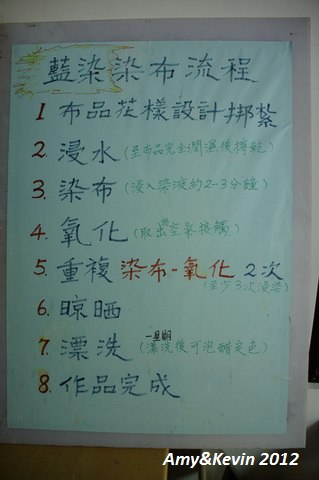 藍染染布流程
1 布品花樣設計綁紮
2. 浸水(至布品完全潤濕後擰乾)
3. 染布(浸入染液約2-3分鐘)
4. 氧化(取出與空氣接觸)
5. 重複染布-氧化2次
(至少3次浸染)
6. 晾晒
一星期
7. 漂洗(漂洗後可泡醋定色)
8. 作品完成
Amy&Kevin 2012